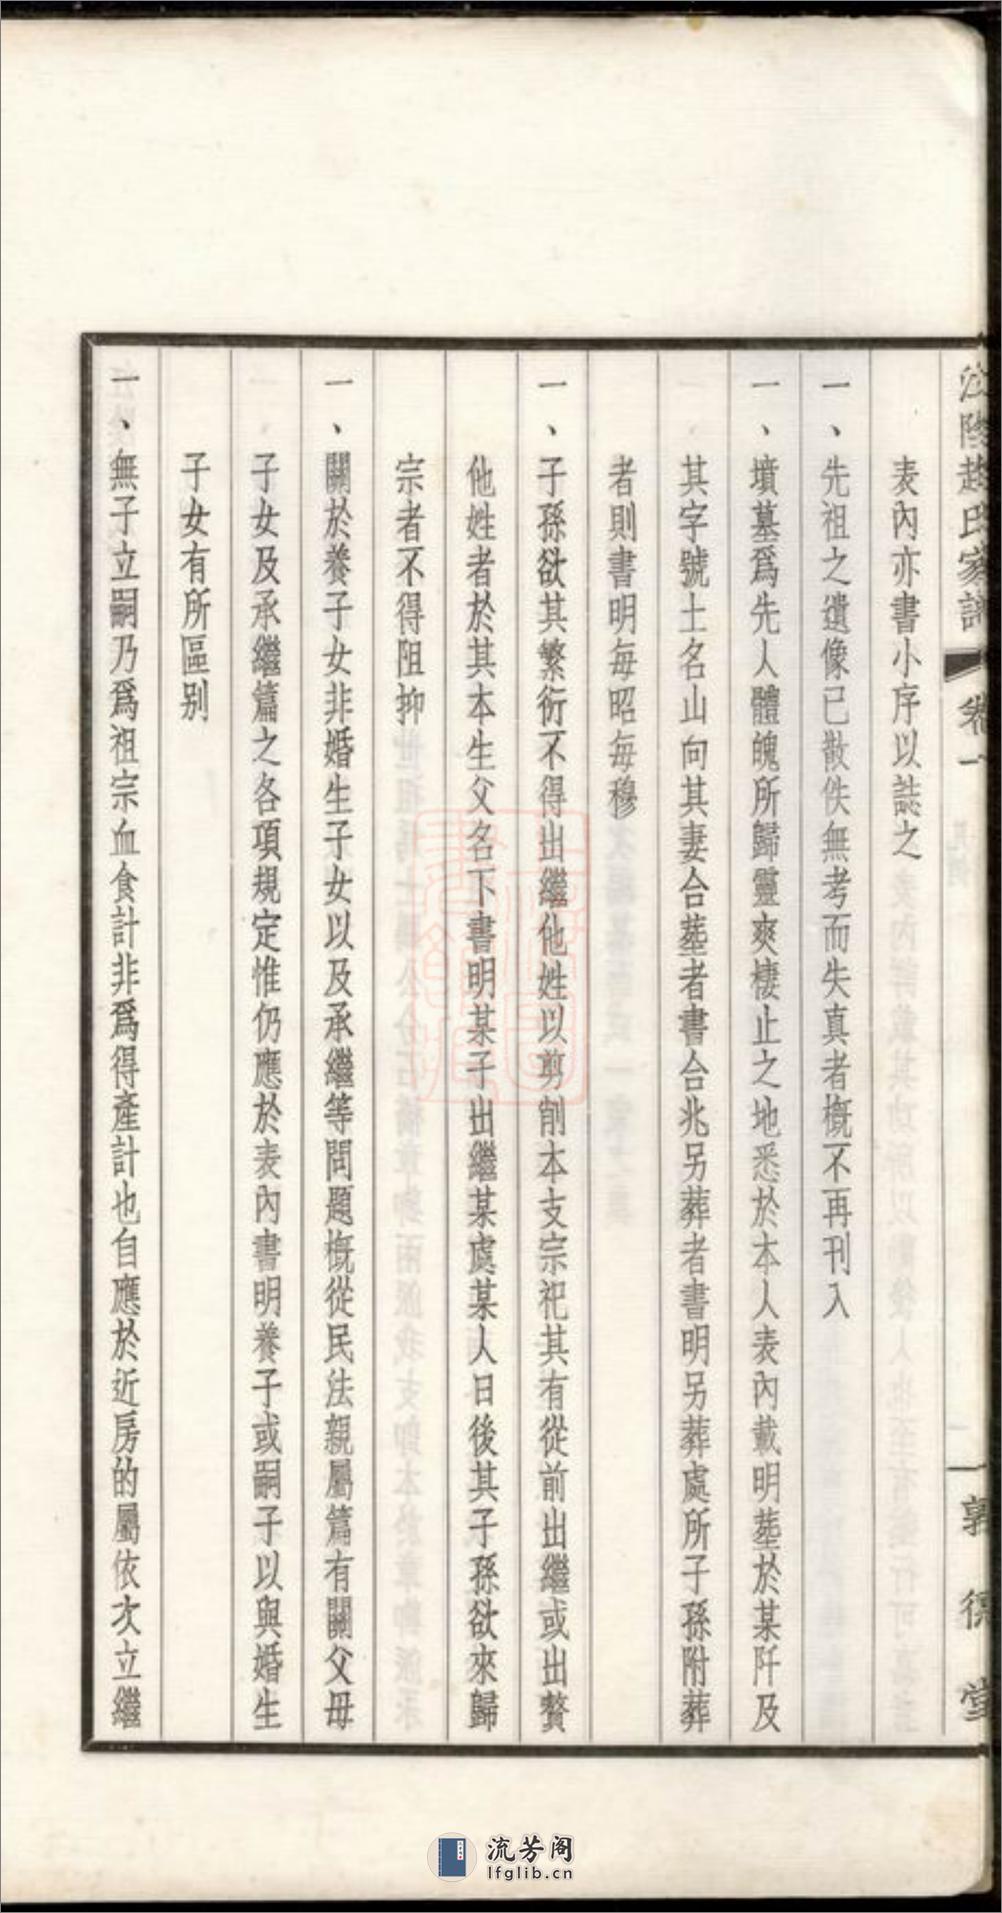 趙氏家譜 卷一 一 敦德堂
表內亦書小序以誌之
一、先祖之遺像已散佚無考而失真者概不再刊入
一、墳墓爲先人體魄所歸靈爽棲止之地悉於本人表內載明塟於某阡及
其字號土名山向其妻合塟者書合兆另葬者書明另葬處所子孫附葬
者則書明每昭每穆
一、子孫欲其繁衍不得出繼他姓以剪削本支宗祀其有從前出繼或出贅
他姓者於其本生父名下書明某子出繼某處某人日後其子孫欲來歸
宗者不得阻抑
一、關於養子女非婚生子女以及承繼等問題概從民法親屬篇有關父母
子女及承繼篇之各項規定惟仍應於表內書明養子或嗣子以與婚生
子女有所區别
一、無子立嗣乃爲祖宗血食計非爲得產計也自應於近房的屬依次立繼
流芳阁
lfglib.cn